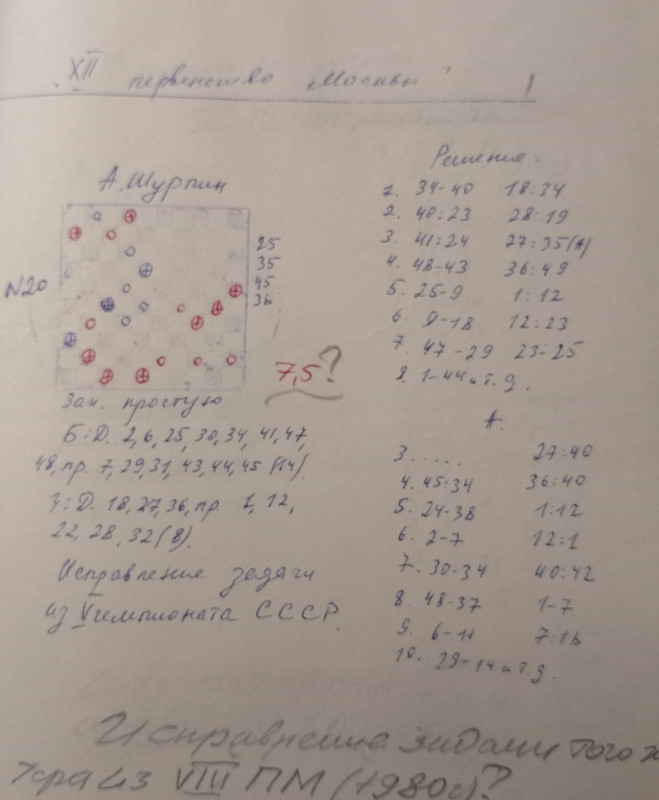 XII первенство Москвы
А. Шурпин
N20
25
35
45
36
7,5?
Зап. простую
Б: Д. 2, 6, 25, 30, 34, 41, 47,
48, пр. 7, 29, 31, 43, 44, 45 (14).
Ч: Д. 18, 27, 36, пр. 1, 12,
22, 28, 32 (8).
Исправление задачи
из V чемпионата СССР.
Решение:
1. 34-40 18:34
2. 40:23 28:19
3. 41:24 27:35 (А)
4. 48-43 36:49
5. 25-9 1:12
6. 9-18 12:23
7. 47-29 23:25
8. 1-44 и т.д.
А.
3. ..... 27:40
4. 45:34 36:40
5. 24-38 1:12
6. 2-7 12:1
7. 30-34 40:42
8. 48-37 1-7
9. 6-11 7:16
10. 29-14 и т.д.
Исправление задачи того ж
из VIII ПМ (1980г)?